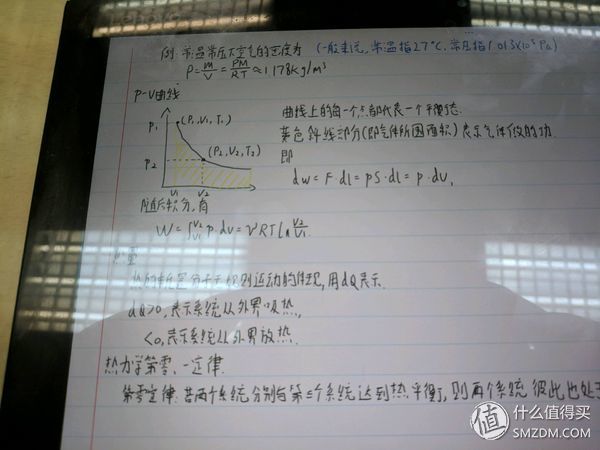 例: 常温常压下空气的密度为 (一般来说, 常温指27℃, 常压指1.013×10⁵Pa)
ρ=m/V=PM/RT≈1.178kg/m³
P-V曲线
P₁
(P₁,V₁,T₁)
P₂
(P₂,V₂,T₂)
V₁ V₂
曲线上的每一个点都代表一个平衡态.
黄色斜线部分(即气体所围面积)表示气体做的功.
即
dw=F·dl=PS·dl=p·dV,
积分,有
W=∫V₁V₂ p·dv=νRTln V₂/V₁
热量
热的本质是分子无规则运动的体现,用dQ表示.
dQ>0,表示系统从外界吸热,
<0,表示系统从外界放热.
热力学第零、一定律
第零定律: 若两个系统分别与第三个系统达到热平衡,则两个系统彼此也处于
值 什么值得买
SMZDM.COM